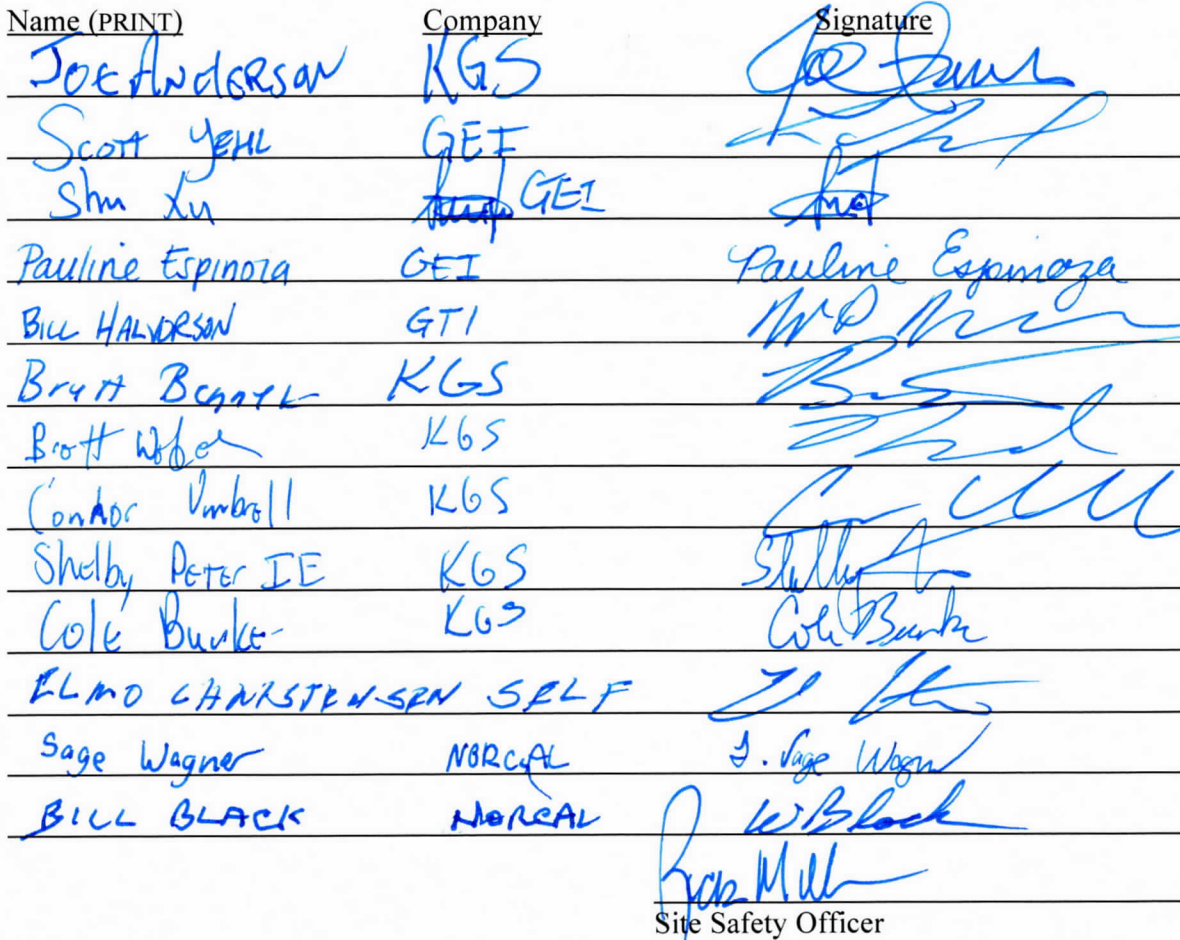 Name (PRINT) Company Signature
JOE ANDERSON KGS Joe
SCOTT YEHL GEI
Shu Xu GEI
Pauline Espinoza GEI Pauline Espinoza
BILL HALVORSON GTI
KGS
Brett KGS
Connor Umbrell KGS
Shelby PETER IE KGS Shelby
Cole Burke KGS Cole Burke
ELMO CHRISTENSEN SELF
Sage Wagner NORCAL J. Sage Wagner
BILL BLACK NORCAL W Black
Rick Mill
Site Safety Officer